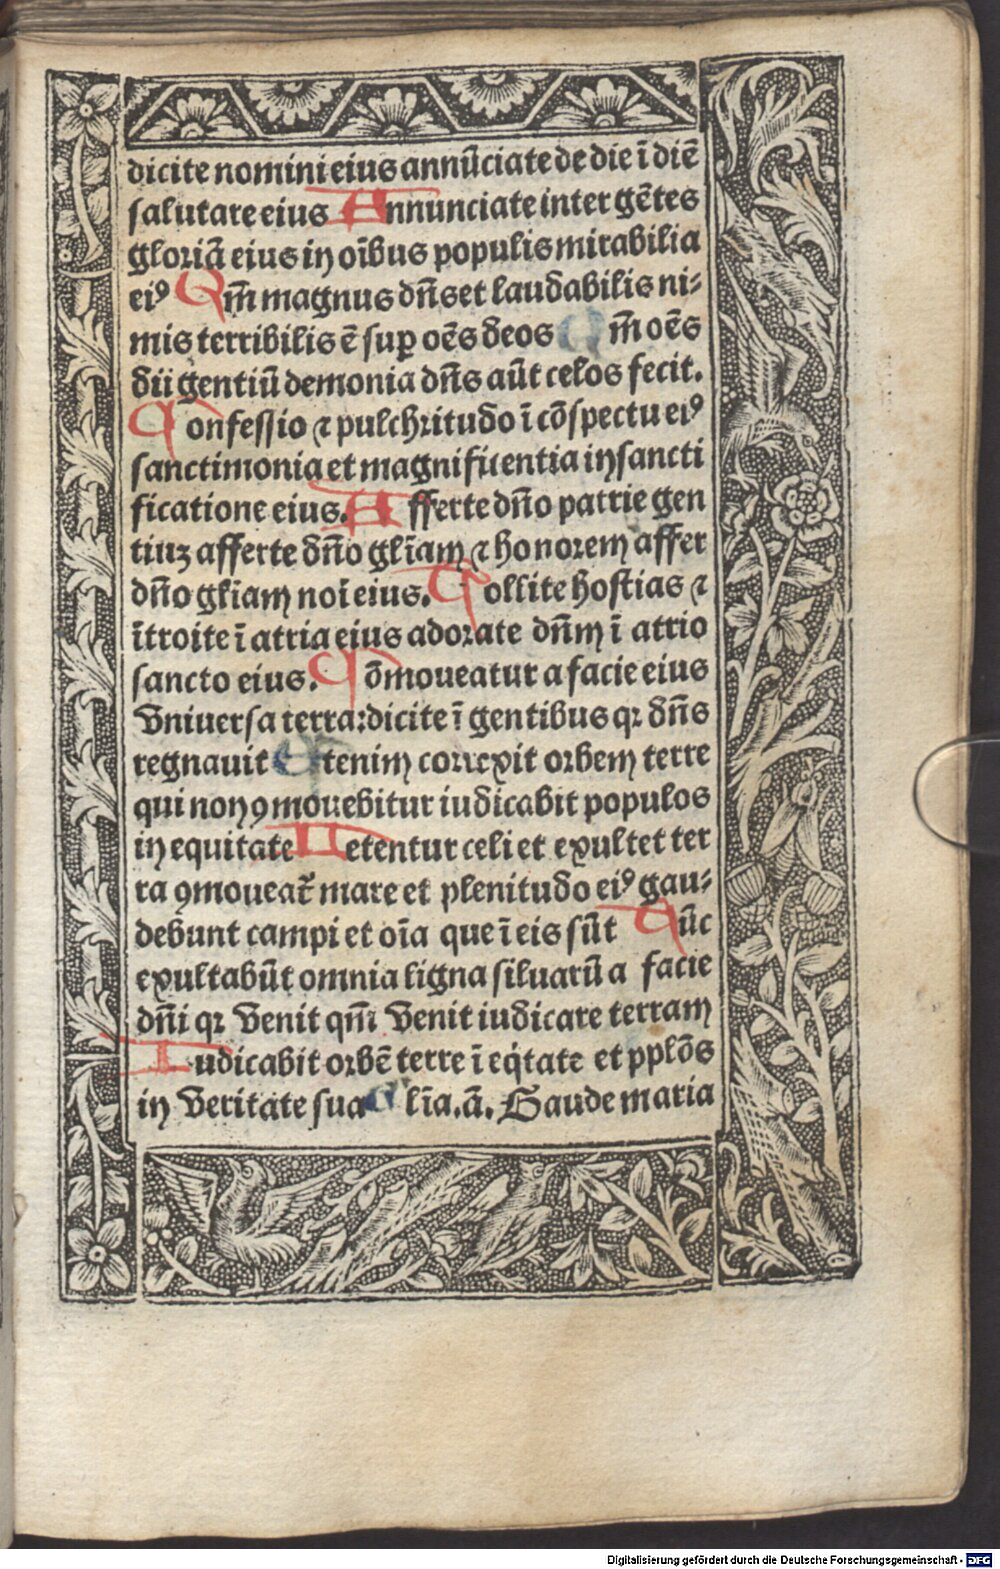 dicite nomini eius annūciate de die ī diē
salutare eius Annunciate inter gētes
gloriā eius in oībus populis mirabilia
eiꝰ Qm̄ magnus dn̄s et laudabilis ni-
mis terribilis ē suꝑ oēs deos Qm̄ oēs
dii gentiū demonia dn̄s aūt celos fecit.
Confessio ⁊ pulchritudo ī cōspectu eiꝰ
sanctimonia et magnificentia in sancti
ficatione eius. Afferte dn̄o patrie gen
tiuꝫ afferte dn̄o gl̄iam ⁊ honorem affer
dn̄o gl̄iam noī eius. Tollite hostias ⁊
ītroite ī atria eius adorate dn̄m ī atrio
sancto eius. Cōmoueatur a facie eius
Vniuersa terra: dicite ī gentibus qꝛ dn̄s
regnauit Etenim correxit orbem terre
qui non ꝯmouebitur iudicabit populos
in equitate Letentur celi et exultet ter
ra ꝯmoueat᷑ mare et plenitudo eiꝰ gau-
debunt campi et oīa que ī eis sūt Tūc
exultabūt omnia ligna siluarū a facie
dn̄i qꝛ Venit qm̄ Venit iudicare terram
Iudicabit orbē terre ī eq̇tate et pplōs
in Veritate sua Gl̄ia. ā. Gaude maria
Digitalisierung gefördert durch die Deutsche Forschungsgemeinschaft - DFG